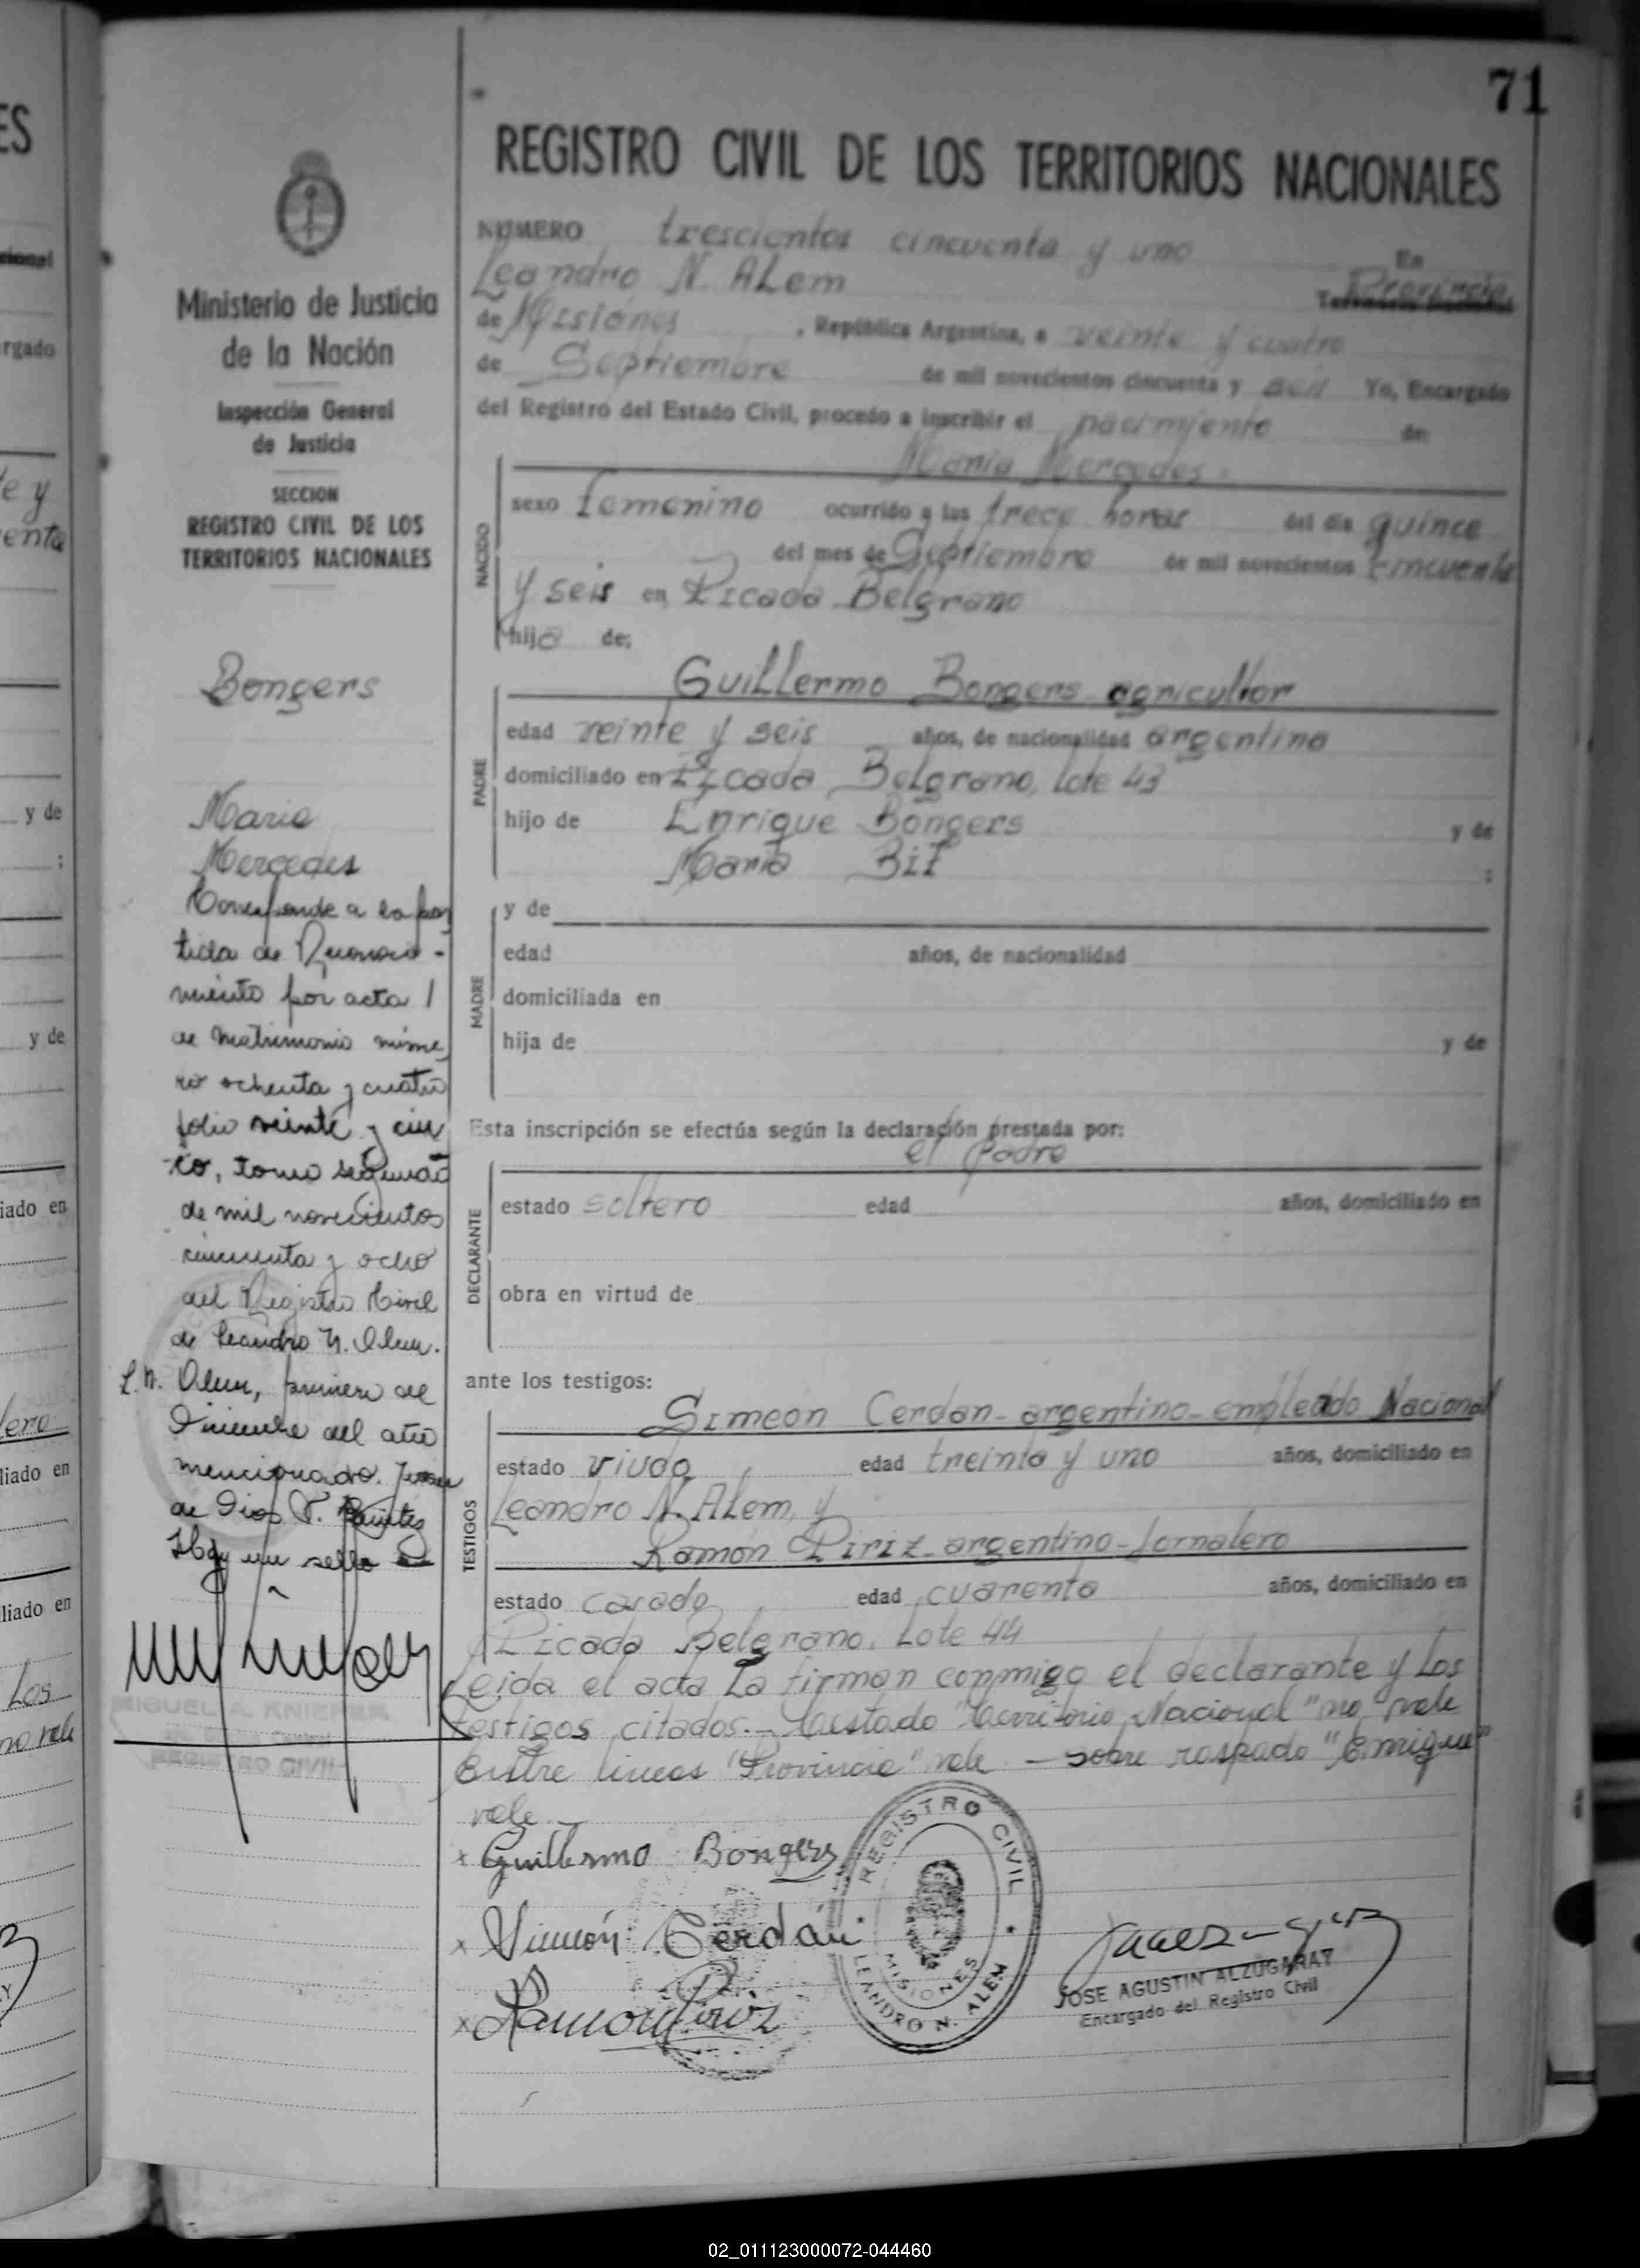 71
REGISTRO CIVIL DE LOS TERRITORIOS NACIONALES
Ministerio de Justicia
de la Nación
Inspección General
de Justicia
SECCION
REGISTRO CIVIL DE LOS
TERRITORIOS NACIONALES
Bongers
Maria
Mercedes
Corresponde a la par
tida de Reconoci-
miento por acta
de matrimonio núme
ro ochenta y cuatro
folio veinte y cin
co, tomo segundo
de mil novecientos
cincuenta y ocho
del Registro Civil
de Leandro N. Alem.
L.N. Alem, primero de
Diciembre del año
mencionado. Juan
de Dios
Hay un sello
MIGUEL A.
REGISTRO CIVIL
NUMERO trescientos cincuenta y uno En
Leandro N. ALem Provincia
Territorio Nacional
de Misiónes, República Argentina, a veinte y cuatro
de Septiembre de mil novecientos cincuenta y seis Yo, Encargado
del Registro del Estado Civil, procedo a inscribir el nacimiento de:
Maria Mercedes.
NACIDO
sexo femenino ocurrido a las trece horas del día quince
del mes de Septiembre de mil novecientos cincuenta
y seis en Picada Belgrano
hija de:
PADRE
Guillermo Bongers agricultor
edad veinte y seis años, de nacionalidad argentina
domiciliado en Picada Belgrano, Lote 43
hijo de Enrique Bongers y de
Maria ;
MADRE
y de
edad años, de nacionalidad
domiciliada en
hija de y de
Esta inscripción se efectúa según la declaración prestada por:
el padre
DECLARANTE
estado soltero edad años, domiciliado en
obra en virtud de
ante los testigos:
TESTIGOS
Simeón Cerdan-argentino-empleado Nacional
estado viudo edad treinta y uno años, domiciliado en
Leandro N. ALem, y
Ramón Piriz-argentino-Jornalero
estado casado edad cuarenta años, domiciliado en
Picada Belgrano, Lote 44
Leida el acta La firman conmigo el declarante y Los
testigos citados.- testado "Territorio Nacional" no vale
Entre lineas "Provincia" vale - sobre raspado "Enrique"
vale
x Guillermo Bongers
x Simeón Cerdán
x Ramón Piriz
REGISTRO CIVIL
MISIONES
LEANDRO N. ALEM
JOSE AGUSTIN ALZUGARAY
Encargado del Registro Civil
02_011123000072-044460